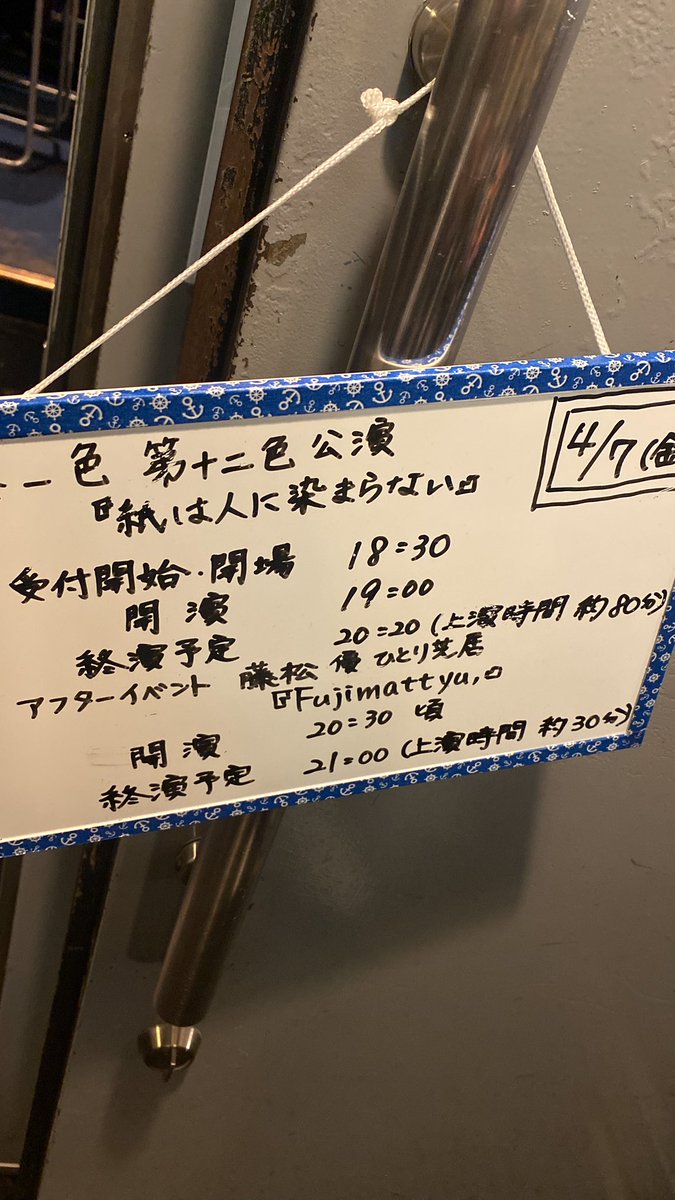 一色 第十二色 公演
4/7(金
『紙は人に染まらない』
受付開始・開場 18:30
開演 19:00
終演予定 20:20 (上演時間 約80分)
アフターイベント 藤松 優 ひとり芝居
『Fujimattyu,』
開演 20:30 頃
終演予定 21:00 (上演時間 約30分)